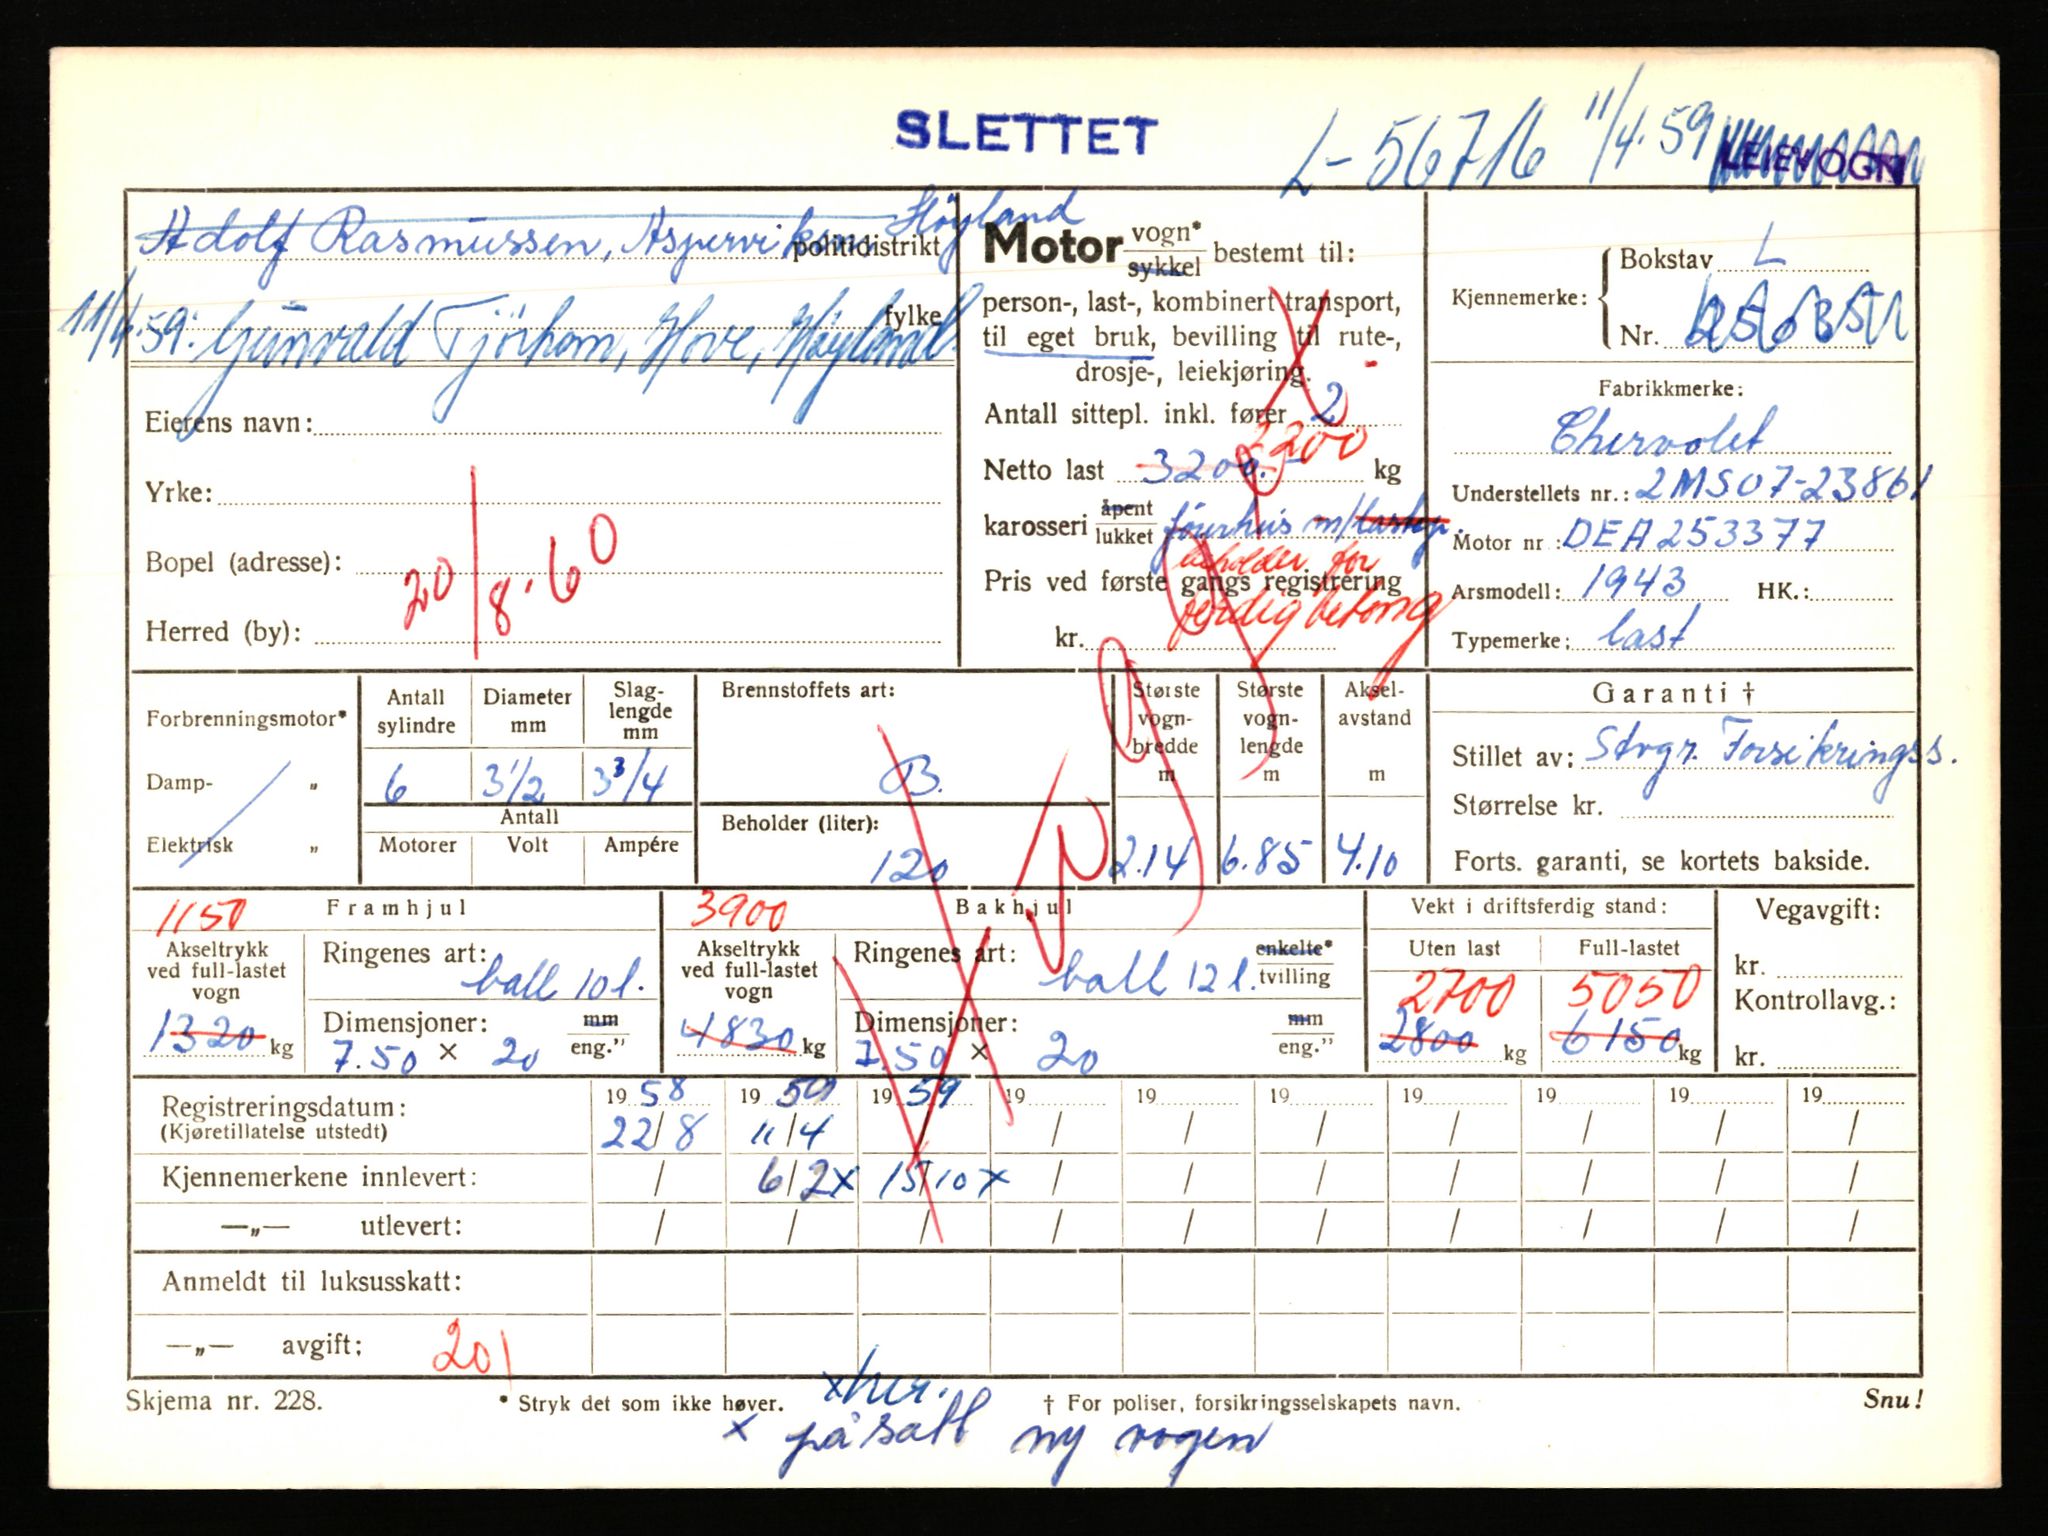 SLETTET
L-56716 11/4.59
LEIEVOGN
Adolf Rasmussen, Aspervika Høyland
politidistrikt
fylke
11/4.59: Gunvald Tjörhom, Hove, Høyland.
Eierens navn:
Yrke:
Bopel (adresse):
Herred (by):
20/8.60
Motor vogn* sykkel bestemt til:
person-, last-, kombinert transport,
til eget bruk, bevilling til rute-,
drosje-, leiekjøring.
Antall sittepl. inkl. fører 2
2200
Netto last 3200.- kg
karosseri åpent lukket førerhus m/lastepl.
beholder for
Pris ved første gangs registrering
ferdigbetong
kr.
Kjennemerke: Bokstav L
Nr.
Fabrikkmerke:
Chervolet
Understellets nr.: 2MS07-23861
Motor nr.: DEA253377
Arsmodell: 1943 HK.:
Typemerke: last
Forbrenningsmotor*
Damp- „
Elektrisk „
Antall sylindre 6
Diameter mm 3 1/2
Slag-lengde mm 3 3/4
Antall
Motorer Volt Ampére
Brennstoffets art:
B.
Beholder (liter):
120
Største vogn-bredde m 2.14
Største vogn-lengde m 6.85
Aksel-avstand m 4.10
Garanti †
Stillet av: Stvgr. Forsikringss.
Størrelse kr.
Forts. garanti, se kortets bakside.
1150 Framhjul
Akseltrykk ved full-lastet vogn
1320 kg
Ringenes art: ball 10 l.
Dimensjoner: mm eng."
7.50 × 20
3900 Bakhjul
Akseltrykk ved full-lastet vogn
4830 kg
Ringenes art: ball 12 l. enkelte* tvilling
Dimensjoner: mm eng."
7.50 × 20
Vekt i driftsferdig stand:
Uten last Full-lastet
2700 5050
2800 kg 6150 kg
Vegavgift:
kr.
Kontrollavg.:
kr.
Registreringsdatum: 19 58 19 59 19 59 19 19 19 19 19 19 19
(Kjøretillatelse utstedt) 22/8 11/4 / / / / / / / /
Kjennemerkene innlevert: / 6/2 x 15/10 x / / / / / / /
—„— utlevert: / / / / / / / / / /
Anmeldt til luksusskatt:
—„— avgift: 20/
Skjema nr. 228. * Stryk det som ikke høver. † For poliser, forsikringsselskapets navn. Snu!
x her.
x påsatt ny vogen